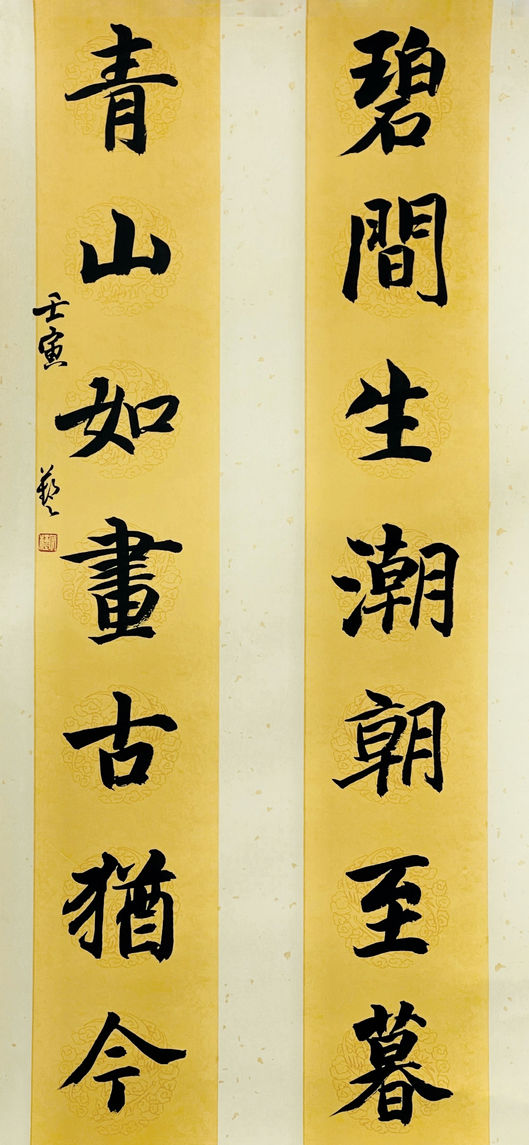 碧間生潮朝至暮
青山如畫古猶今
壬寅